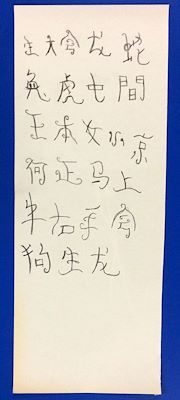 生大會龙 蛇
兔虎屯間
王本女小京
何正马上
牛右手會
狗生龙